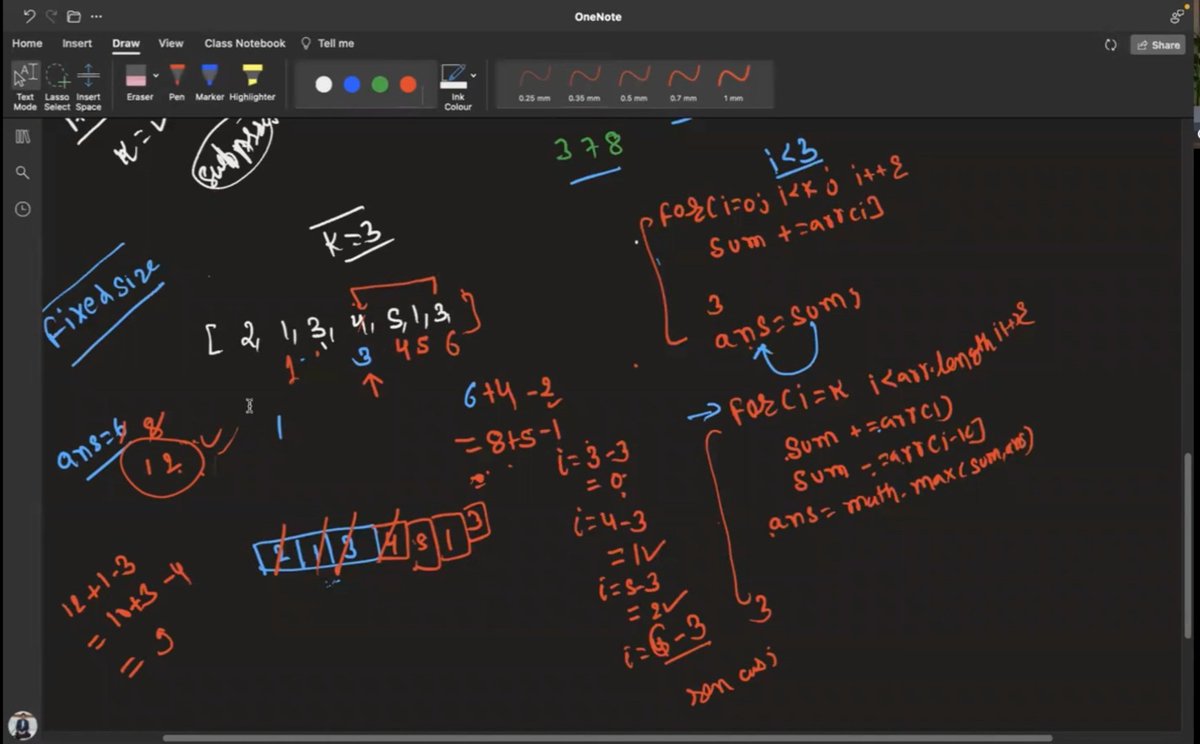 OneNote
Home Insert Draw View Class Notebook Tell me
Share
Text Mode
Lasso Select
Insert Space
Eraser
Pen
Marker
Highlighter
Ink Colour
0.25 mm
0.35 mm
0.5 mm
0.7 mm
1 mm
3 7 8
i<3
K=3
fixed size
[ 2, 1, 3, 4, 5, 1, 3, ]
1 3 4 5 6
ans=6 8
12
1
6+4-2
=8+5-1
i=3-3
=0
i=4-3
=1✓
i=5-3
=2✓
i=6-3
2 1 3 4 5 1 3
12+1-3
=10+3-4
=9
for(i=0; i<K; i++{
sum +=arr[i]
}
ans=sum;
→ for(i=K i<arr.length i++{
sum +=arr(i)
sum -=arr[i-K]
ans=math.max(sum,ans)
}